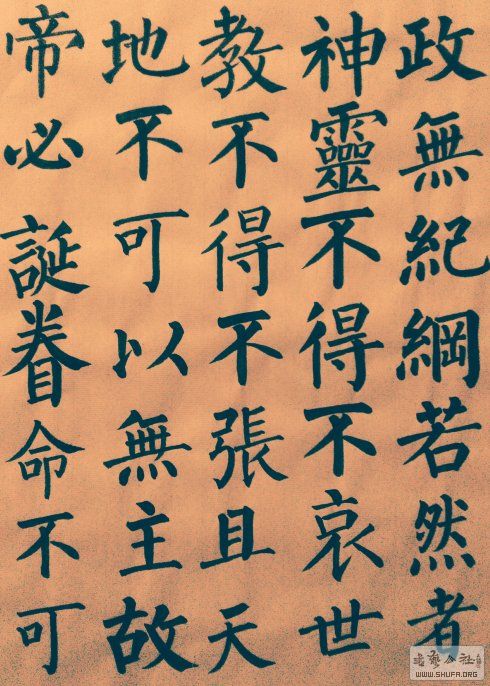 政無紀綱若然者
神靈不得不哀世
教不得不張且天
地不可以無主故
帝必誕眷命不可
书艺公社
WWW.SHUFA.ORG